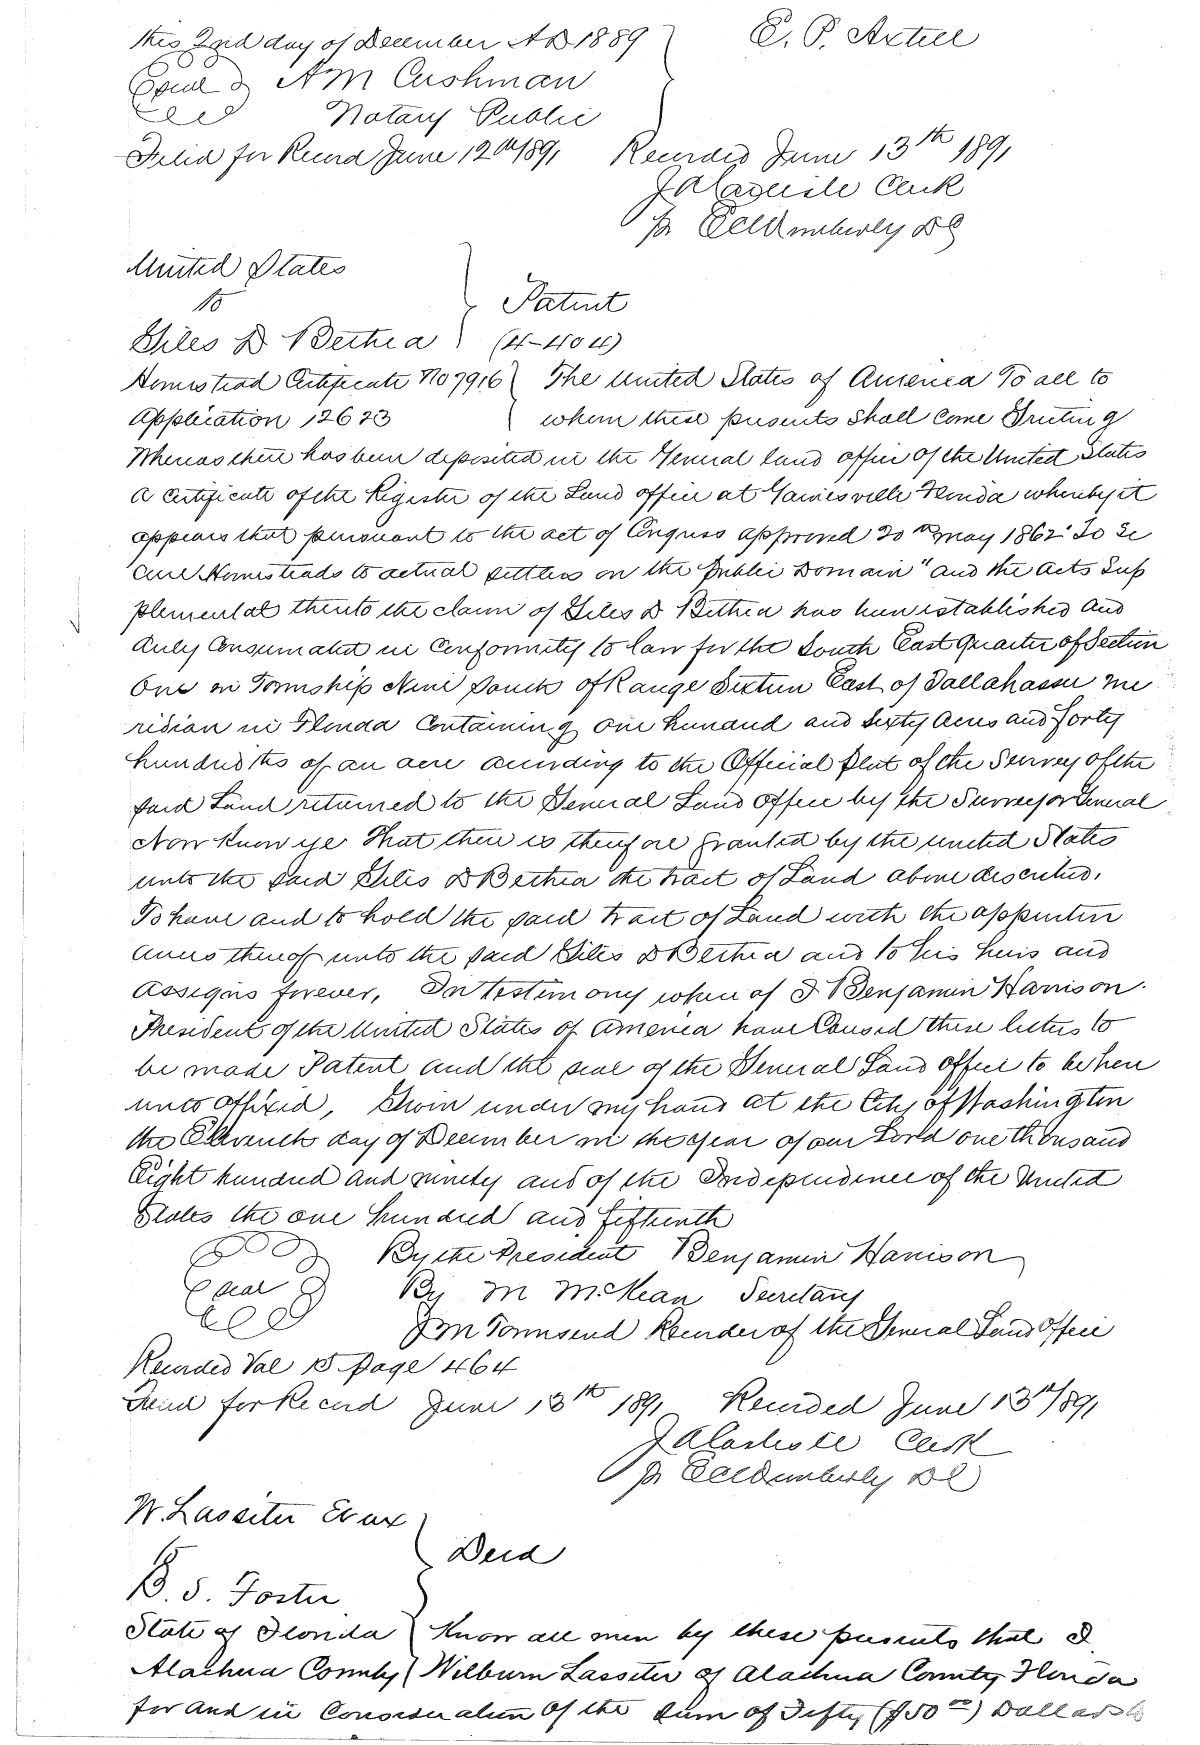 this 2nd day of December AD 1889 E. P. Axtell
Seal A M Cushman
Notary Public
Filed for Record June 12th 1891 Recorded June 13th 1891
J A Carlisle Clerk
pr Wimberly DC
United States
to Patent
Giles D Bethea (4-404)
Homestead Certificate No 7916 The United States of America To all to
Application 12623 whom these presents shall come Greeting
Whereas there has been deposited in the General land office of the United States
a certificate of the Register of the Land office at Gainesville Florida whereby it
appears that pursuant to the act of Congress approved 20th May 1862 "To Se
cure Homesteads to actual settlers on the public Domain" and the acts Sup
plemental thereto the claim of Giles D Bethea has been established and
duly Consumated in Conformity to law for the South East quarter of Section
One in Township Nine South of Range Sixteen East of Tallahassee Me
ridian in Florida Containing one hundred and Sixty Acres and forty
hundredths of an acre according to the Official Plat of the Survey of the
said Land returned to the General Land Office by the Surveyor General
Now Know ye That there is therefore granted by the United States
unto the said Giles D Bethea the tract of Land above described.
To have and to hold the said tract of Land with the appurten
ances thereof unto the said Giles D Bethea and to his heirs and
assigns forever, In testimony where of I Benjamin Harrison.
President of the United States of America have Caused these letters to
be made Patent and the seal of the General Land office to be here
unto affixed, Given under my hand at the City of Washington
the Eleventh day of December in the year of our Lord one thousand
Eight hundred and ninety and of the Independence of the United
States the one hundred and fifteenth
By the President Benjamin Harrison
Seal By M McKean Secretary
J M Townsend Recorder of the General Land Office
Recorded Vol 15 page 464
Filed for Record June 13th 1891 Recorded June 13th/891
J A Carlisle Clerk
pr Wimberly DC
W. Lassiter Et ux
to Deed
B. S. Foster
State of Florida Know all men by these presents that I
Alachua County Wilburn Lassiter of Alachua County Florida
for and in Consideration of the Sum of Fifty ($50 00) Dollars to